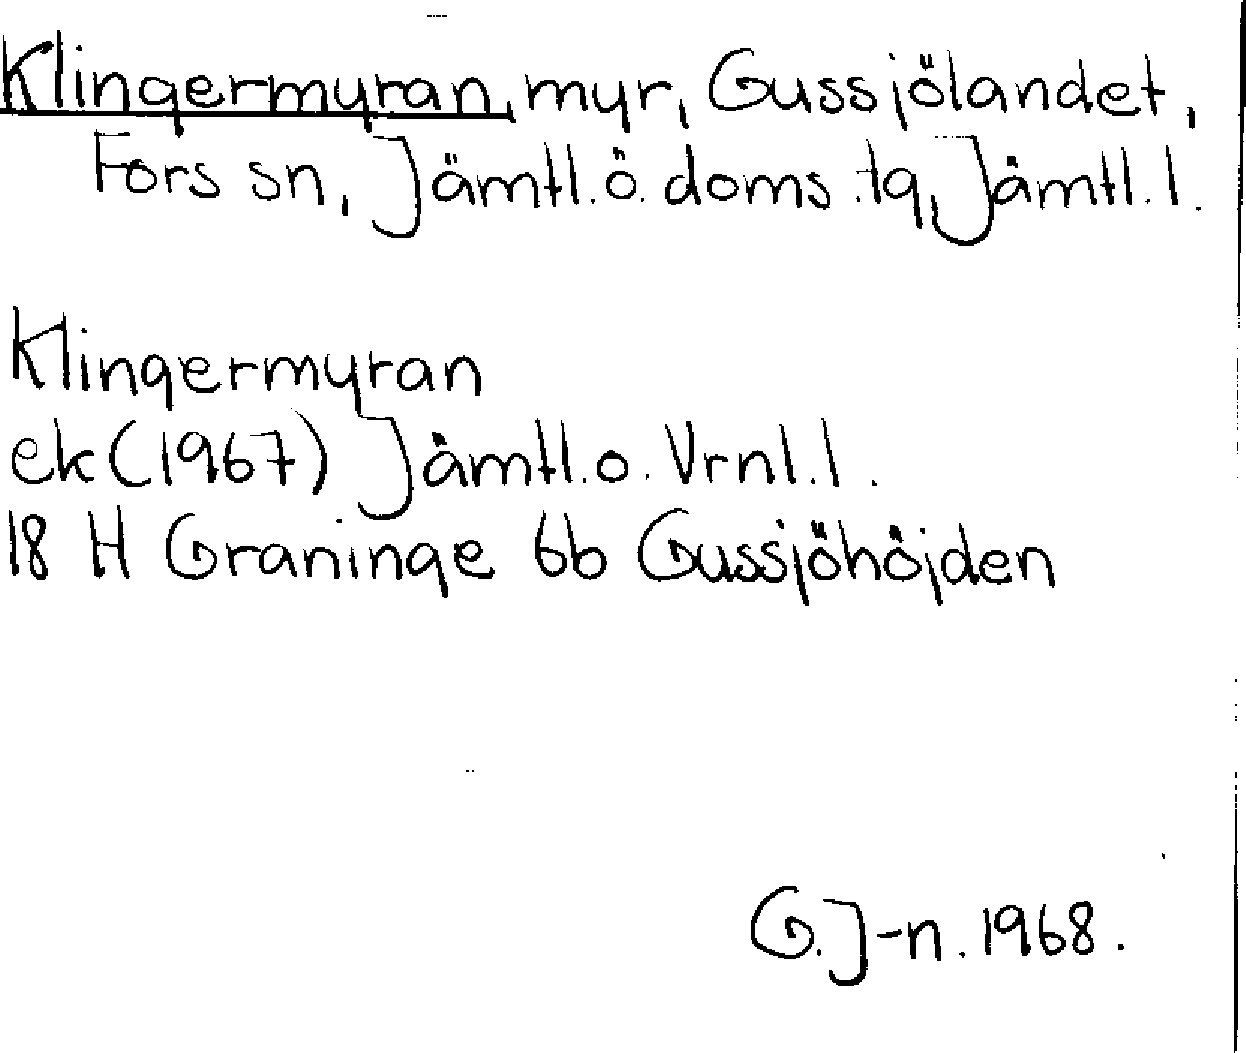 Klingermyran, myr, Gussjölandet,
Fors sn, Jämtl. ö. doms. tg, Jämtl. l.
Klingermyran
ek (1967) Jämtl. o. Vrnl. l.
18 H Graninge 6b Gussjöhöjden
G. J-n. 1968.